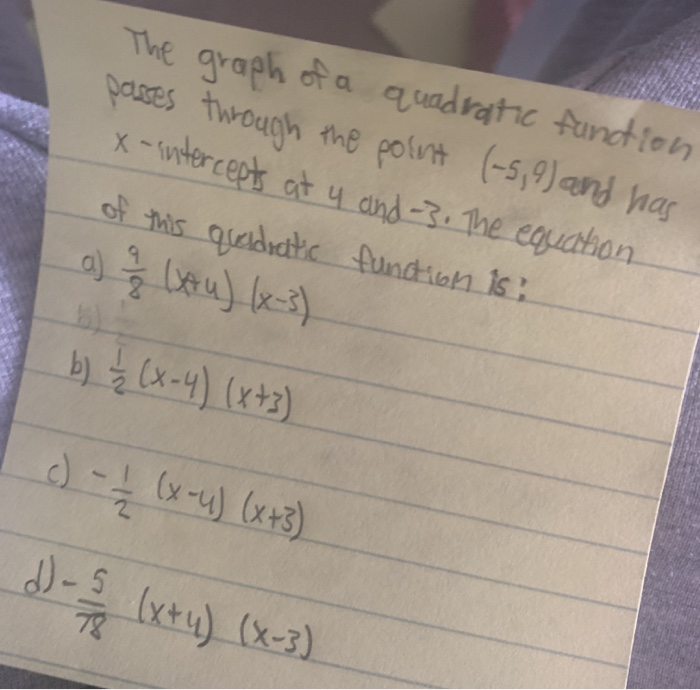 The graph of a quadratic function
passes through the point (-5,9) and has
x-intercepts at 4 and -3. The equation
of this quadratic function is:
a) 9/8 (x+4) (x-3)
b) 1/2 (x-4) (x+3)
c) -1/2 (x-4) (x+3)
d) -5/78 (x+4) (x-3)